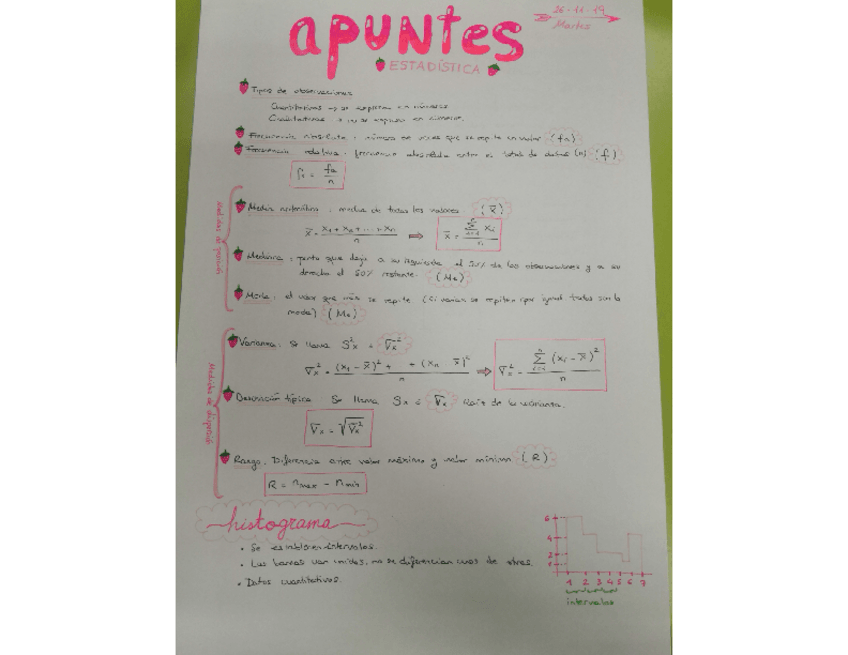 apuntes
26-11-19
Martes
ESTADÍSTICA
Tipos de observaciones
Cuantitativas → se expresan en números.
Cualitativas : no se expresan en números.
Frecuencia absoluta : número de veces que se repite un valor (fa)
Frecuencia relativa : frecuencia absoluta entre el total de datos (n) (f)
fi = fa / n
Medidas de posición
Media aritmética : media de todos los valores (x̄)
x̄ = x₁ + x₂ + ... + xn / n ⇒ x̄ = Σ xi / n
Mediana : punto que deja a su izquierda el 50% de las observaciones y a su
derecha el 50% restante. (Me)
Moda : el valor que más se repite (Si varias se repiten por igual todas son la
moda) (Mo)
Medidas de dispersión
Varianza : Se llama S²x o σx²
σx² = (x₁ - x̄)² + + (xn x̄)² / n ⇒ σx² = Σ (xi - x̄)² / n
Desviación típica Se llama Sx o σx Raíz de la varianza.
σx = √σx²
Rango : Diferencia entre valor máximo y valor mínimo (R)
R = nmax - nmin
histograma
• Se establecen intervalos.
• Las barras van unidas, no se diferencian unas de otras.
• Datos cuantitativos.
6
4
2
1
1 2 3 4 5 6 7
intervalos